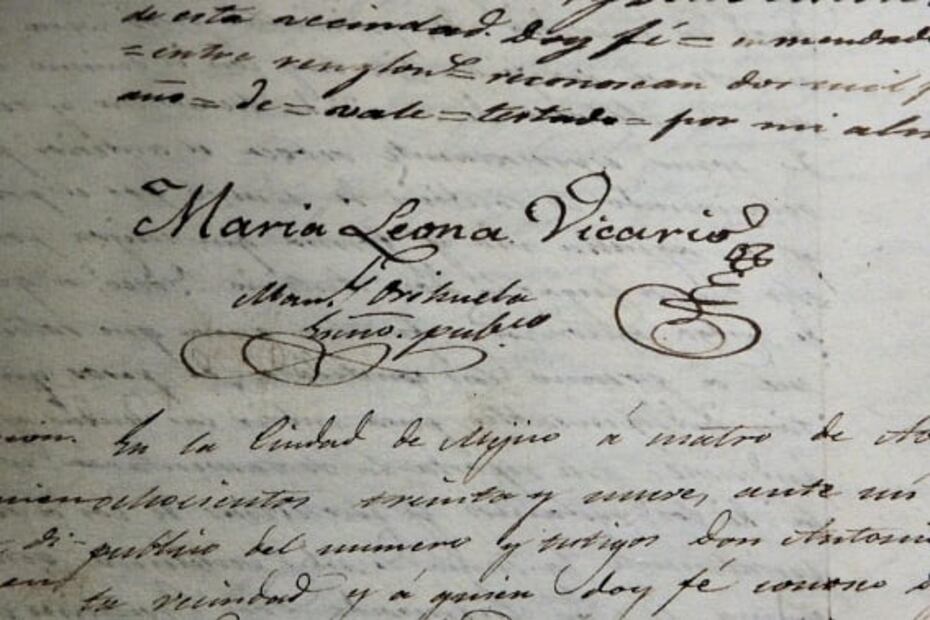 de esta vecindad. Doy fé = enmendado
= entre renglon^s = reconoscan dos mil p
año = de = vale = testado = por mi al
Maria Leona Vicario
Man.^l Orihuela
Ess.no publico
En la Ciudad de Mejico á cuatro de
ochocientos treinta y nueve, ante mi
publico del numero y testigos Don Antonio
ta vecindad y á quien doy fé conosco